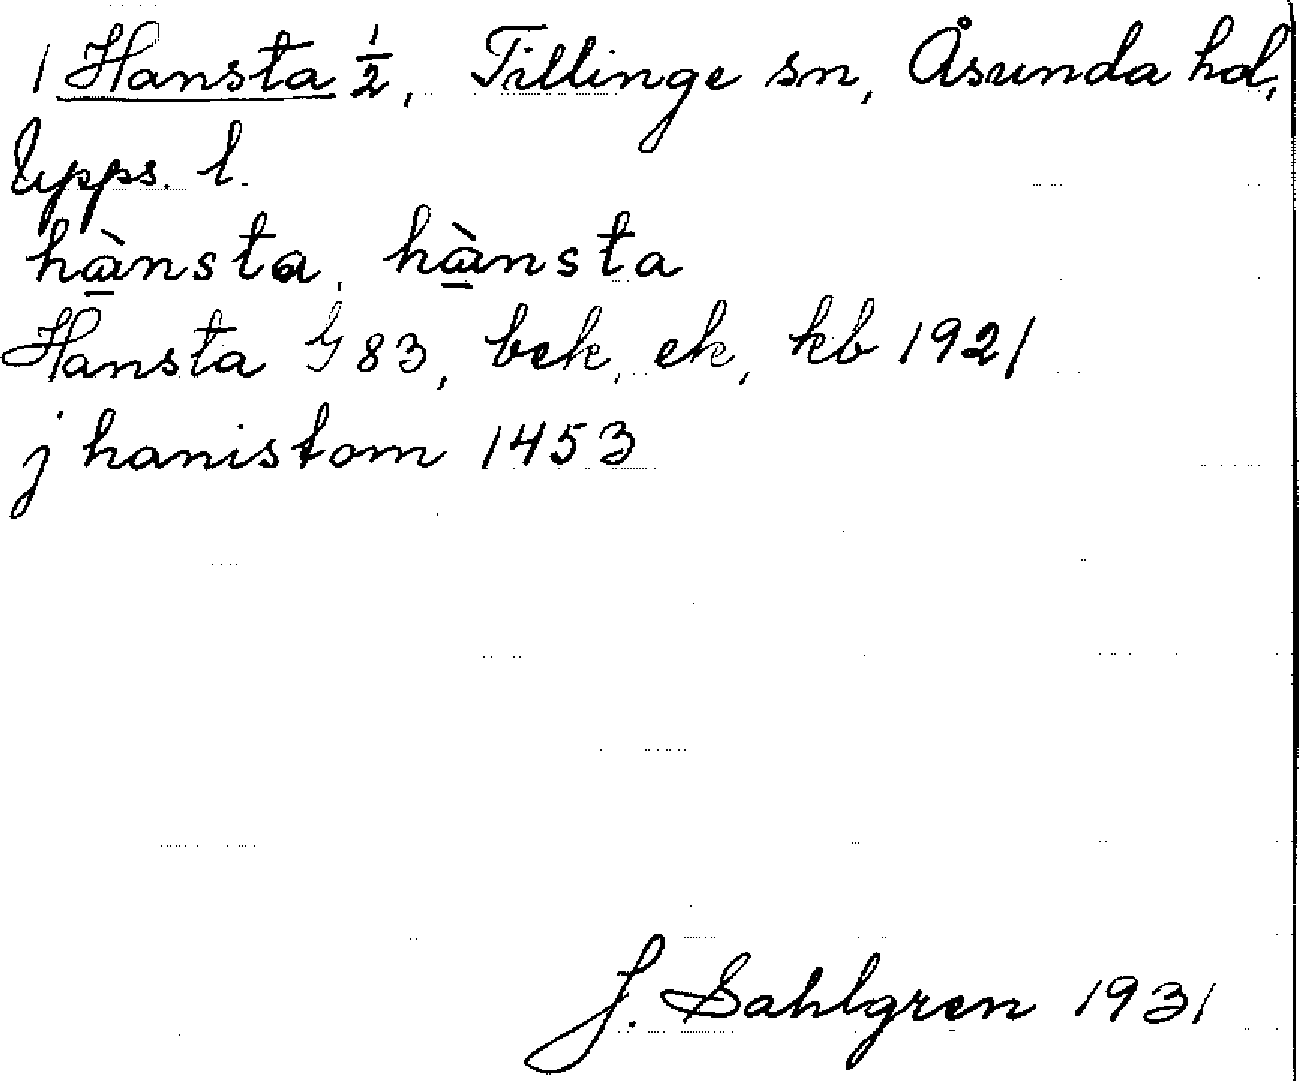 1 Hansta 1/2, Tillinge sn, Åsunda hd,
Upps. l.
hànsta, hànsta
Hansta G 83, bek, ek, kb 1921
j hanistom 1453
J. Sahlgren 1931